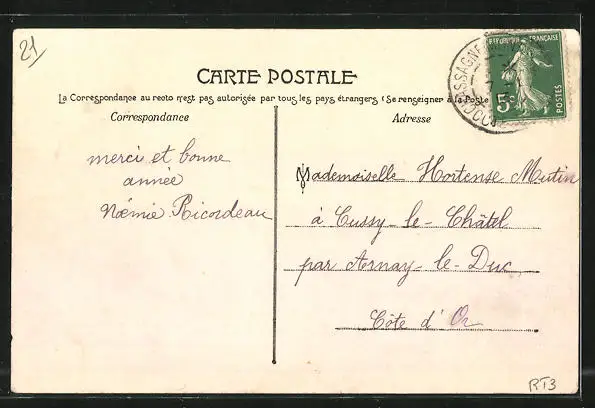 21
RÉPUBLIQUE FRANÇAISE
5c
POSTES
CARTE POSTALE
La Correspondance au recto n'est pas autorisée par tous les pays étrangers (Se renseigner à la Poste
Correspondance
Adresse
merci et bonne
année
Noémie Ricordeau
Mademoiselle Hortense Mutin
à Cussy-le-Châtel
par Arnay-le-Duc
Côte d'Or
RT3